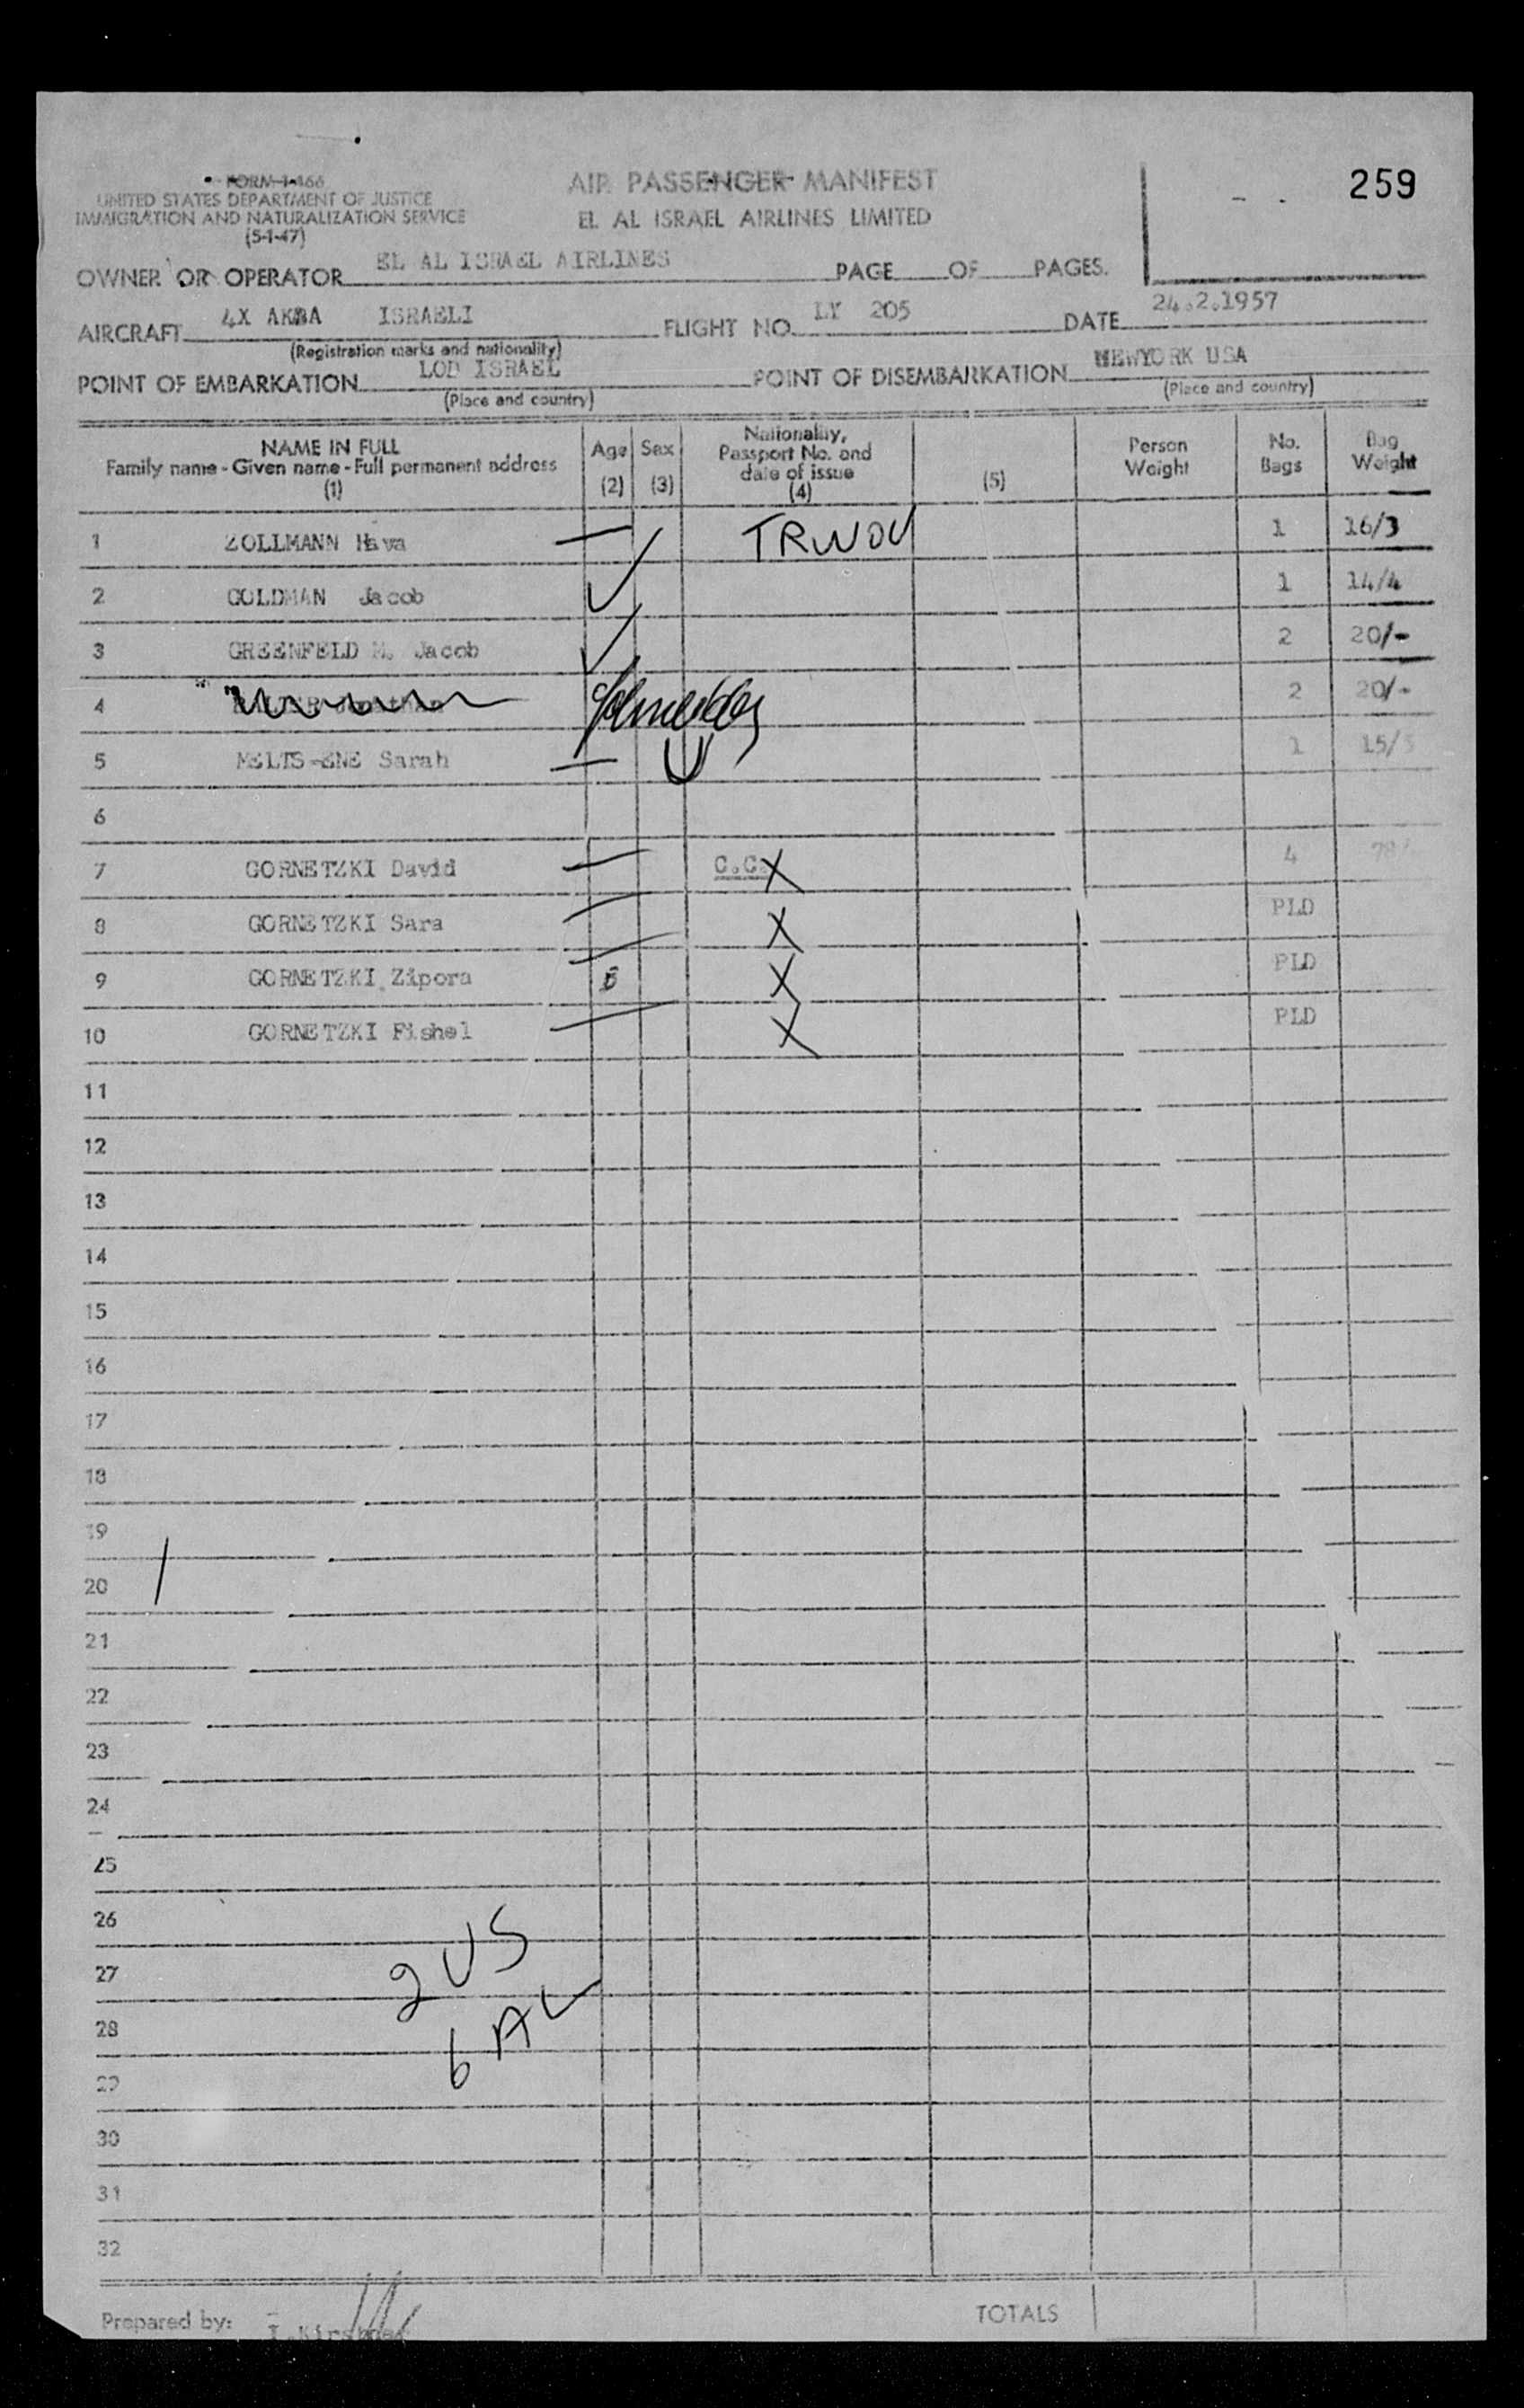 259
FORM I-466
UNITED STATES DEPARTMENT OF JUSTICE
IMMIGRATION AND NATURALIZATION SERVICE
(5-1-47)
AIR PASSENGER MANIFEST
EL AL ISRAEL AIRLINES LIMITED
OWNER OR OPERATOR EL AL ISRAEL AIRLINES PAGE OF PAGES.
AIRCRAFT 4X AKBA ISRAELI FLIGHT NO. LY 205 DATE 24.2.1957
(Registration marks and nationality)
POINT OF EMBARKATION LOD ISRAEL POINT OF DISEMBARKATION NEWYORK USA
(Place and country) (Place and country)
NAME IN FULL
Family name - Given name - Full permanent address
(1)
Age
(2)
Sex
(3)
Nationality,
Passport No. and
date of issue
(4)
(5)
Person
Weight
No.
Bags
Bag
Weight
1 ZOLLMANN Hava 1 16/3
2 GOLDMAN Jacob 1 14/4
3 GREENFELD M. Jacob 2 20/-
4 2 20/-
5 MELTS-ENE Sarah 1 15/
6
7 GORNETZKI David C.C. X 4
8 GORNETZKI Sara X PLD
9 GORNETZKI Zipora X PLD
10 GORNETZKI Fishel X PLD
11
12
13
14
15
16
17
18
19
20
21
22
23
24
25
26
27
28
29
30
31
32
2 US
6 AL
Prepared by: TOTALS